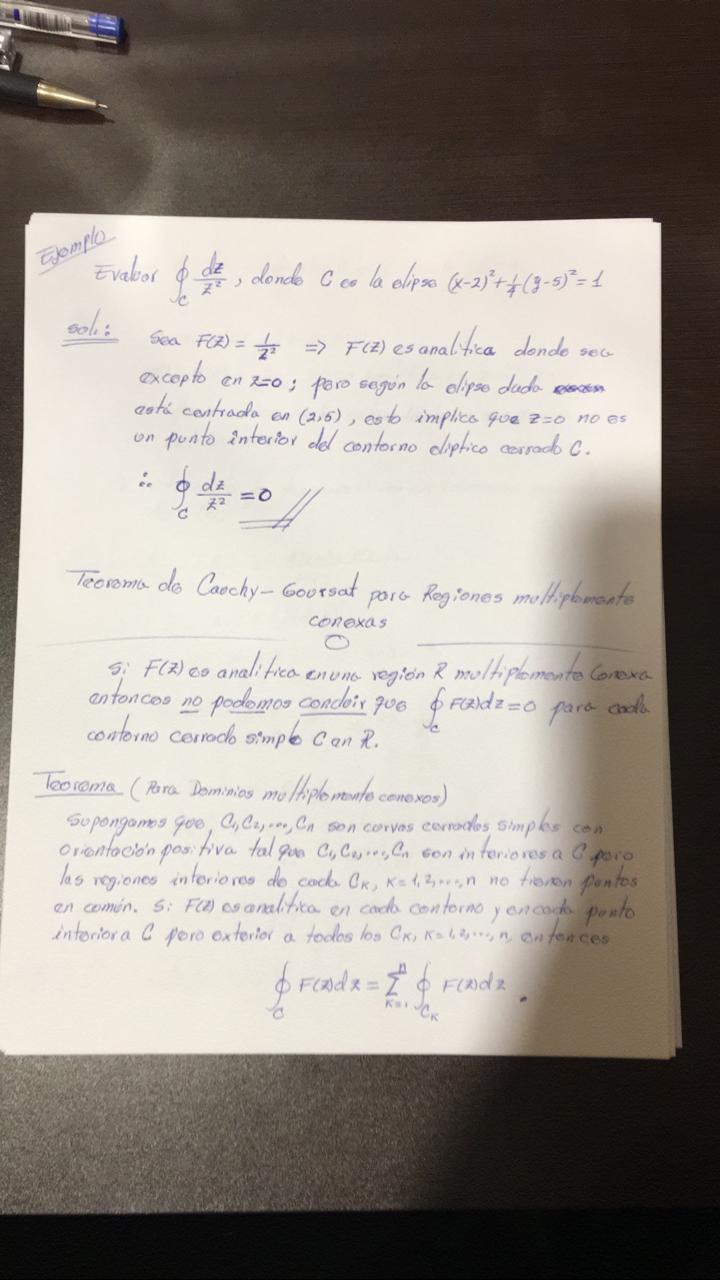 Ejemplo
Evaluar ∮_C dz/z², donde C es la elipse (x-2)² + 1/4 (y-5)² = 1
sol.: Sea F(z) = 1/z² => F(z) es analítica donde sea
excepto en z=0; pero según la elipse dada
está centrada en (2,5), esto implica que z=0 no es
un punto interior del contorno elíptico cerrado C.
∴ ∮_C dz/z² = 0
Teorema de Cauchy-Goursat para Regiones multiplemente
conexas
Si F(z) es analítica en una región R multiplemente Conexa
entonces no podemos concluir que ∮_C F(z)dz = 0 para cada
contorno cerrado simple C en R.
Teorema (Para Dominios multiplemente conexos)
Supongamos que C₁, C₂, ..., Cn son curvas cerradas simples con
orientación positiva tal que C₁, C₂, ..., Cn son interiores a C pero
las regiones interiores de cada C_K, K=1,2,...,n no tienen puntos
en común. Si F(z) es analítica en cada contorno y en cada punto
interior a C pero exterior a todos los C_K, K=1,2,...,n, entonces
∮_C F(z)dz = Σ_{K=1}^{n} ∮_{C_K} F(z)dz.